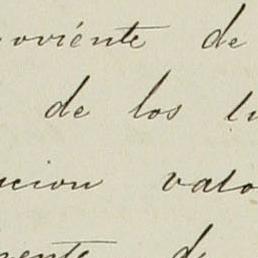 oviénte de
de los
cion valo
mente d